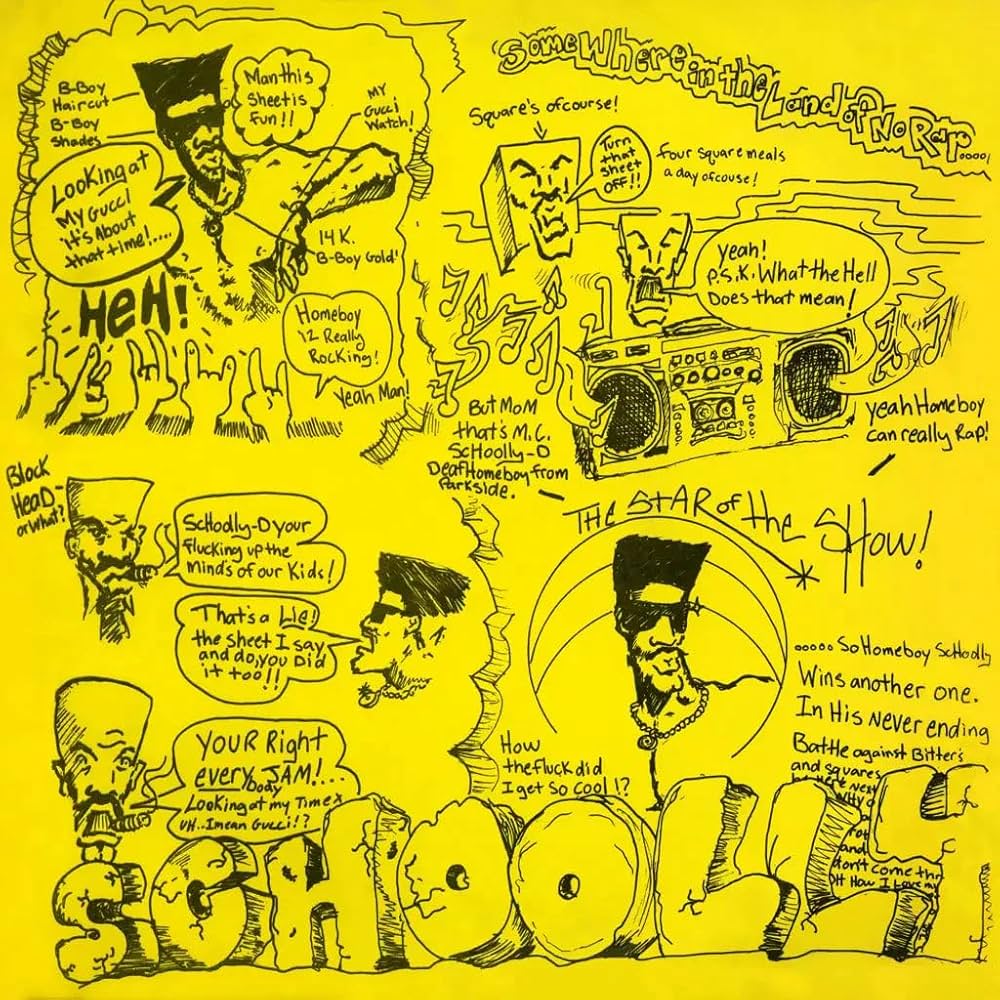 B-Boy
Haircut
B-Boy
Shades
Man this
Sheet is
Fun!!
MY
Gucci
Watch!
Looking at
My Gucci
it's About
that time!....
14 K.
B-Boy Gold!
HeH!
Homeboy
iz Really
Rocking!
Yeah Man!
SomeWhere in the Land of No Rap.....
Square's ofcourse!
Turn
that
sheet
OFF!!
four square meals
a day ofcouse!
yeah!
P.S.K. What the Hell
Does that mean!
But MoM
that's M.C.
ScHoolly-D
Deaf Homeboy from
Parkside.
yeah Homeboy
can really Rap!
Block
HeaD-
or what?
ScHoolly-D your
flucking up the
minds of our Kids!
That's a Lie!
the sheet I say
and do, you Did
it too!!
YOUR Right
every body JAM!...
Looking at my Timex
UH..I mean Gucci!?
THe StAR of the SHow!
How
the fluck did
I get So cool!?
ooooo So Homeboy ScHoolly
Wins another one.
In His Never ending
Battle against Bitter's
and squares
Next
Why
and
don't come thr
OH How I Love my
SCHOOLLY